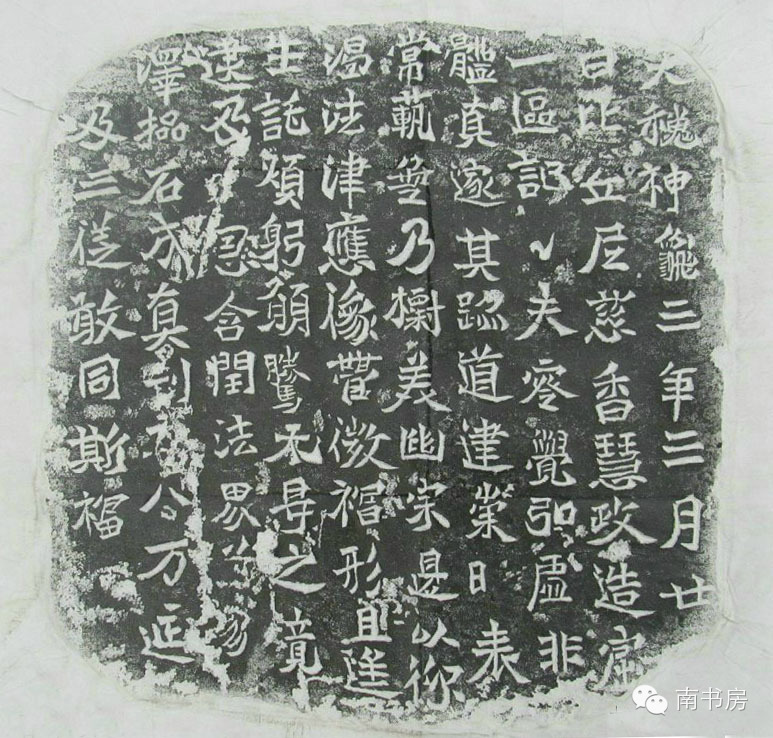 大魏神龜三年三月廿
日比丘尼慈香慧政造窟
一區記之夫零覺弘虛非
體真邃其跡道建崇日表
常範無乃標美幽宗是以仰
渴法津應像營微福形且遙
生託煩躬願騰無㝵之境
逮及恩含潤法界
澤石成真刊万延
及三從敢同斯福
南书房